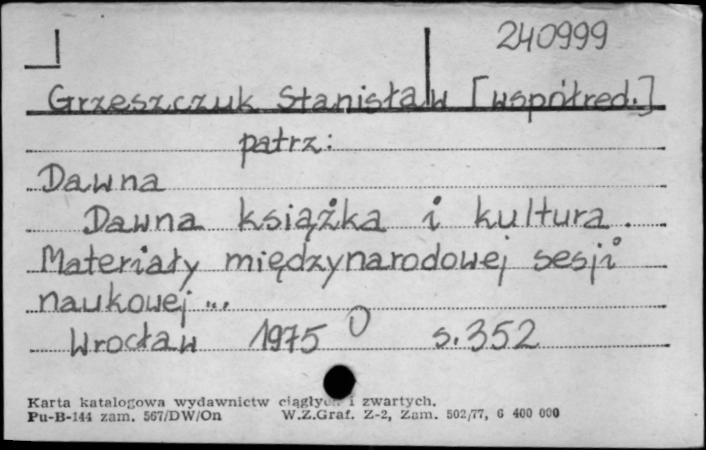 240999
Grzeszczuk Stanisław [współred.]
patrz:
Dawna
Dawna książka i kultura.
Materiały międzynarodowej sesji
naukowej ...
Wrocław 1975 s. 352
Karta katalogowa wydawnictw ciągłych i zwartych.
Pu-B-144 zam. 567/DW/On W.Z.Graf. Z-2, Zam. 502/77, 6 400 000